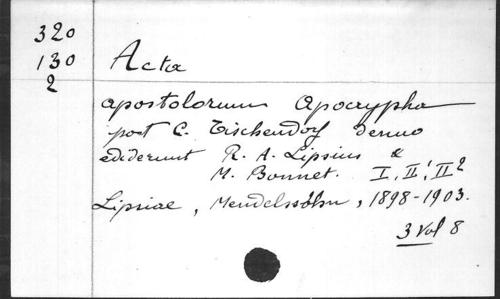 320
130
2
Acta
apostolorum Apocrypha
post C. Tischendorf denuo
ediderunt R. A. Lipsius &
M. Bonnet. I, II¹, II²
Lipsiae, Mendelssohn, 1898-1903.
3 Vol 8